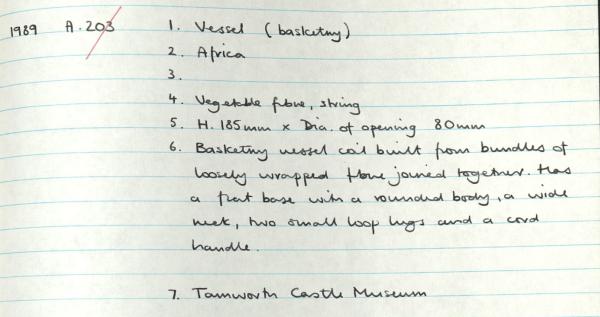 1989 A.203 1. Vessel (basketry)
2. Africa
3.
4. Vegetable fibre, string
5. H. 185mm x Dia. of opening 80mm
6. Basketry vessel coil built from bundles of
loosely wrapped fibre joined together. Has
a flat base with a rounded body, a wide
neck, two small loop lugs and a cord
handle.
7. Tamworth Castle Museum